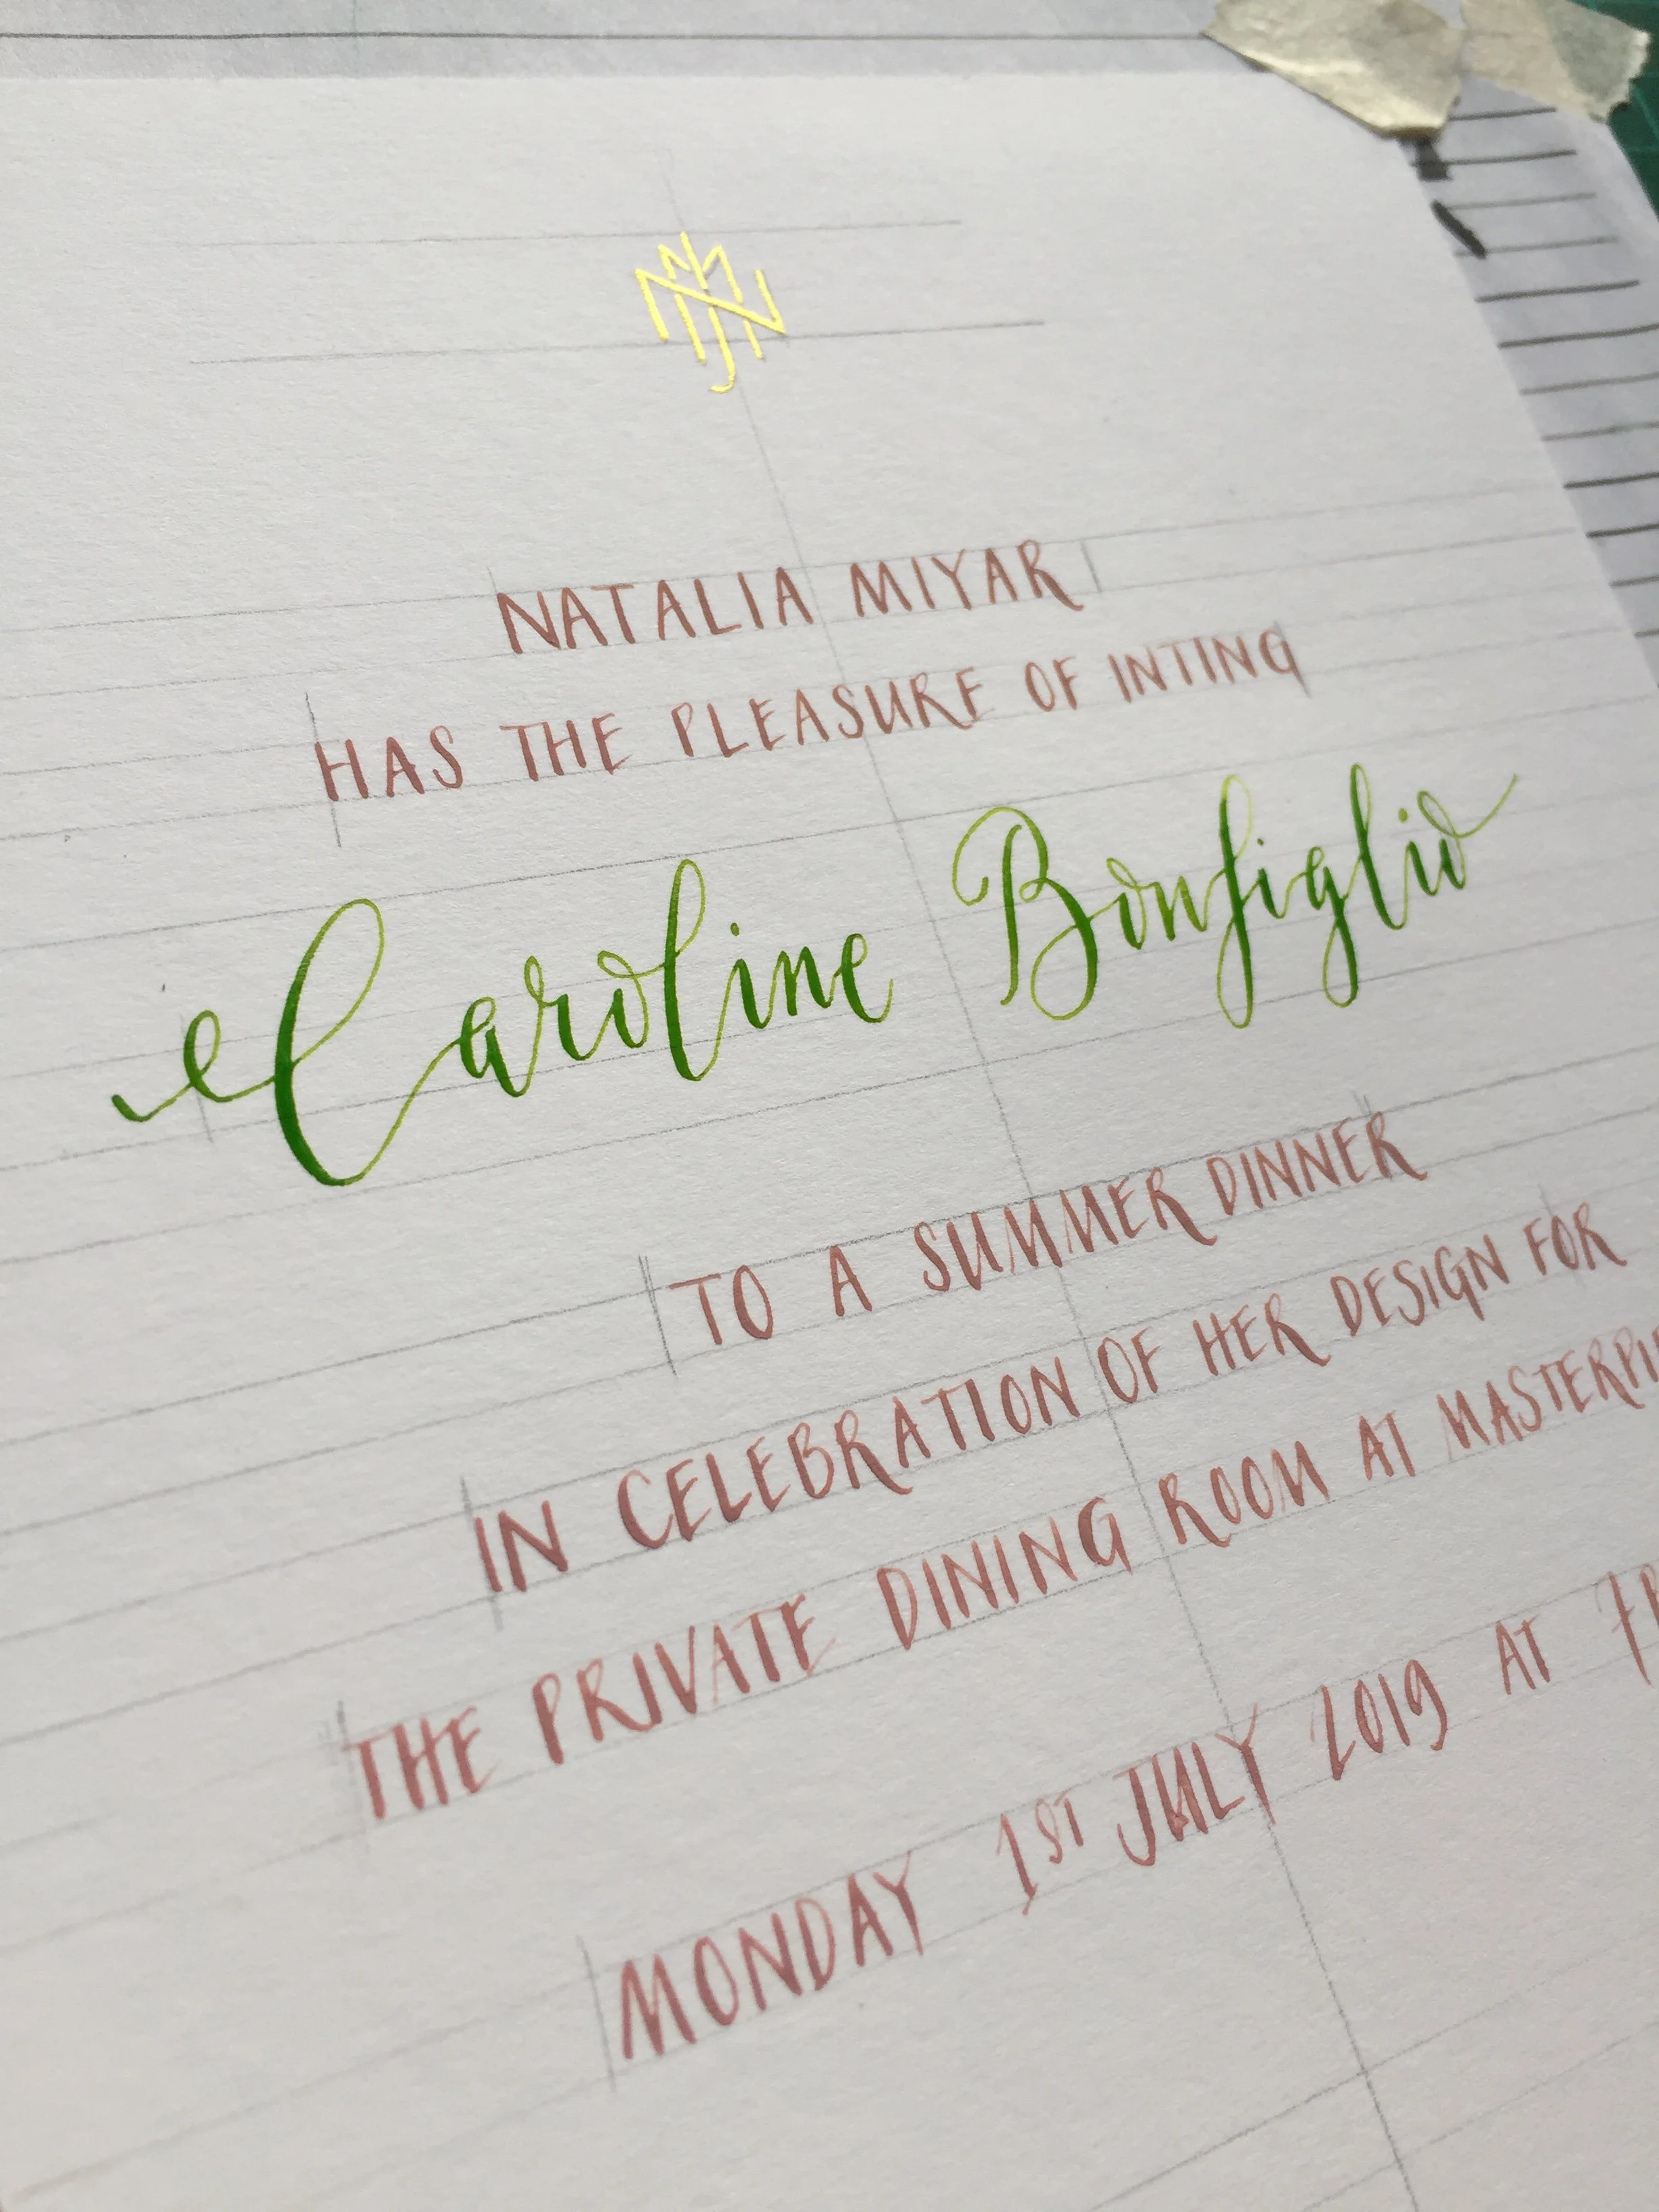 NATALIA MIYAR
HAS THE PLEASURE OF INTING
Caroline Bonfiglio
TO A SUMMER DINNER
IN CELEBRATION OF HER DESIGN FOR
THE PRIVATE DINING ROOM AT MASTERPI
MONDAY 1ST JULY 2019 AT 7P